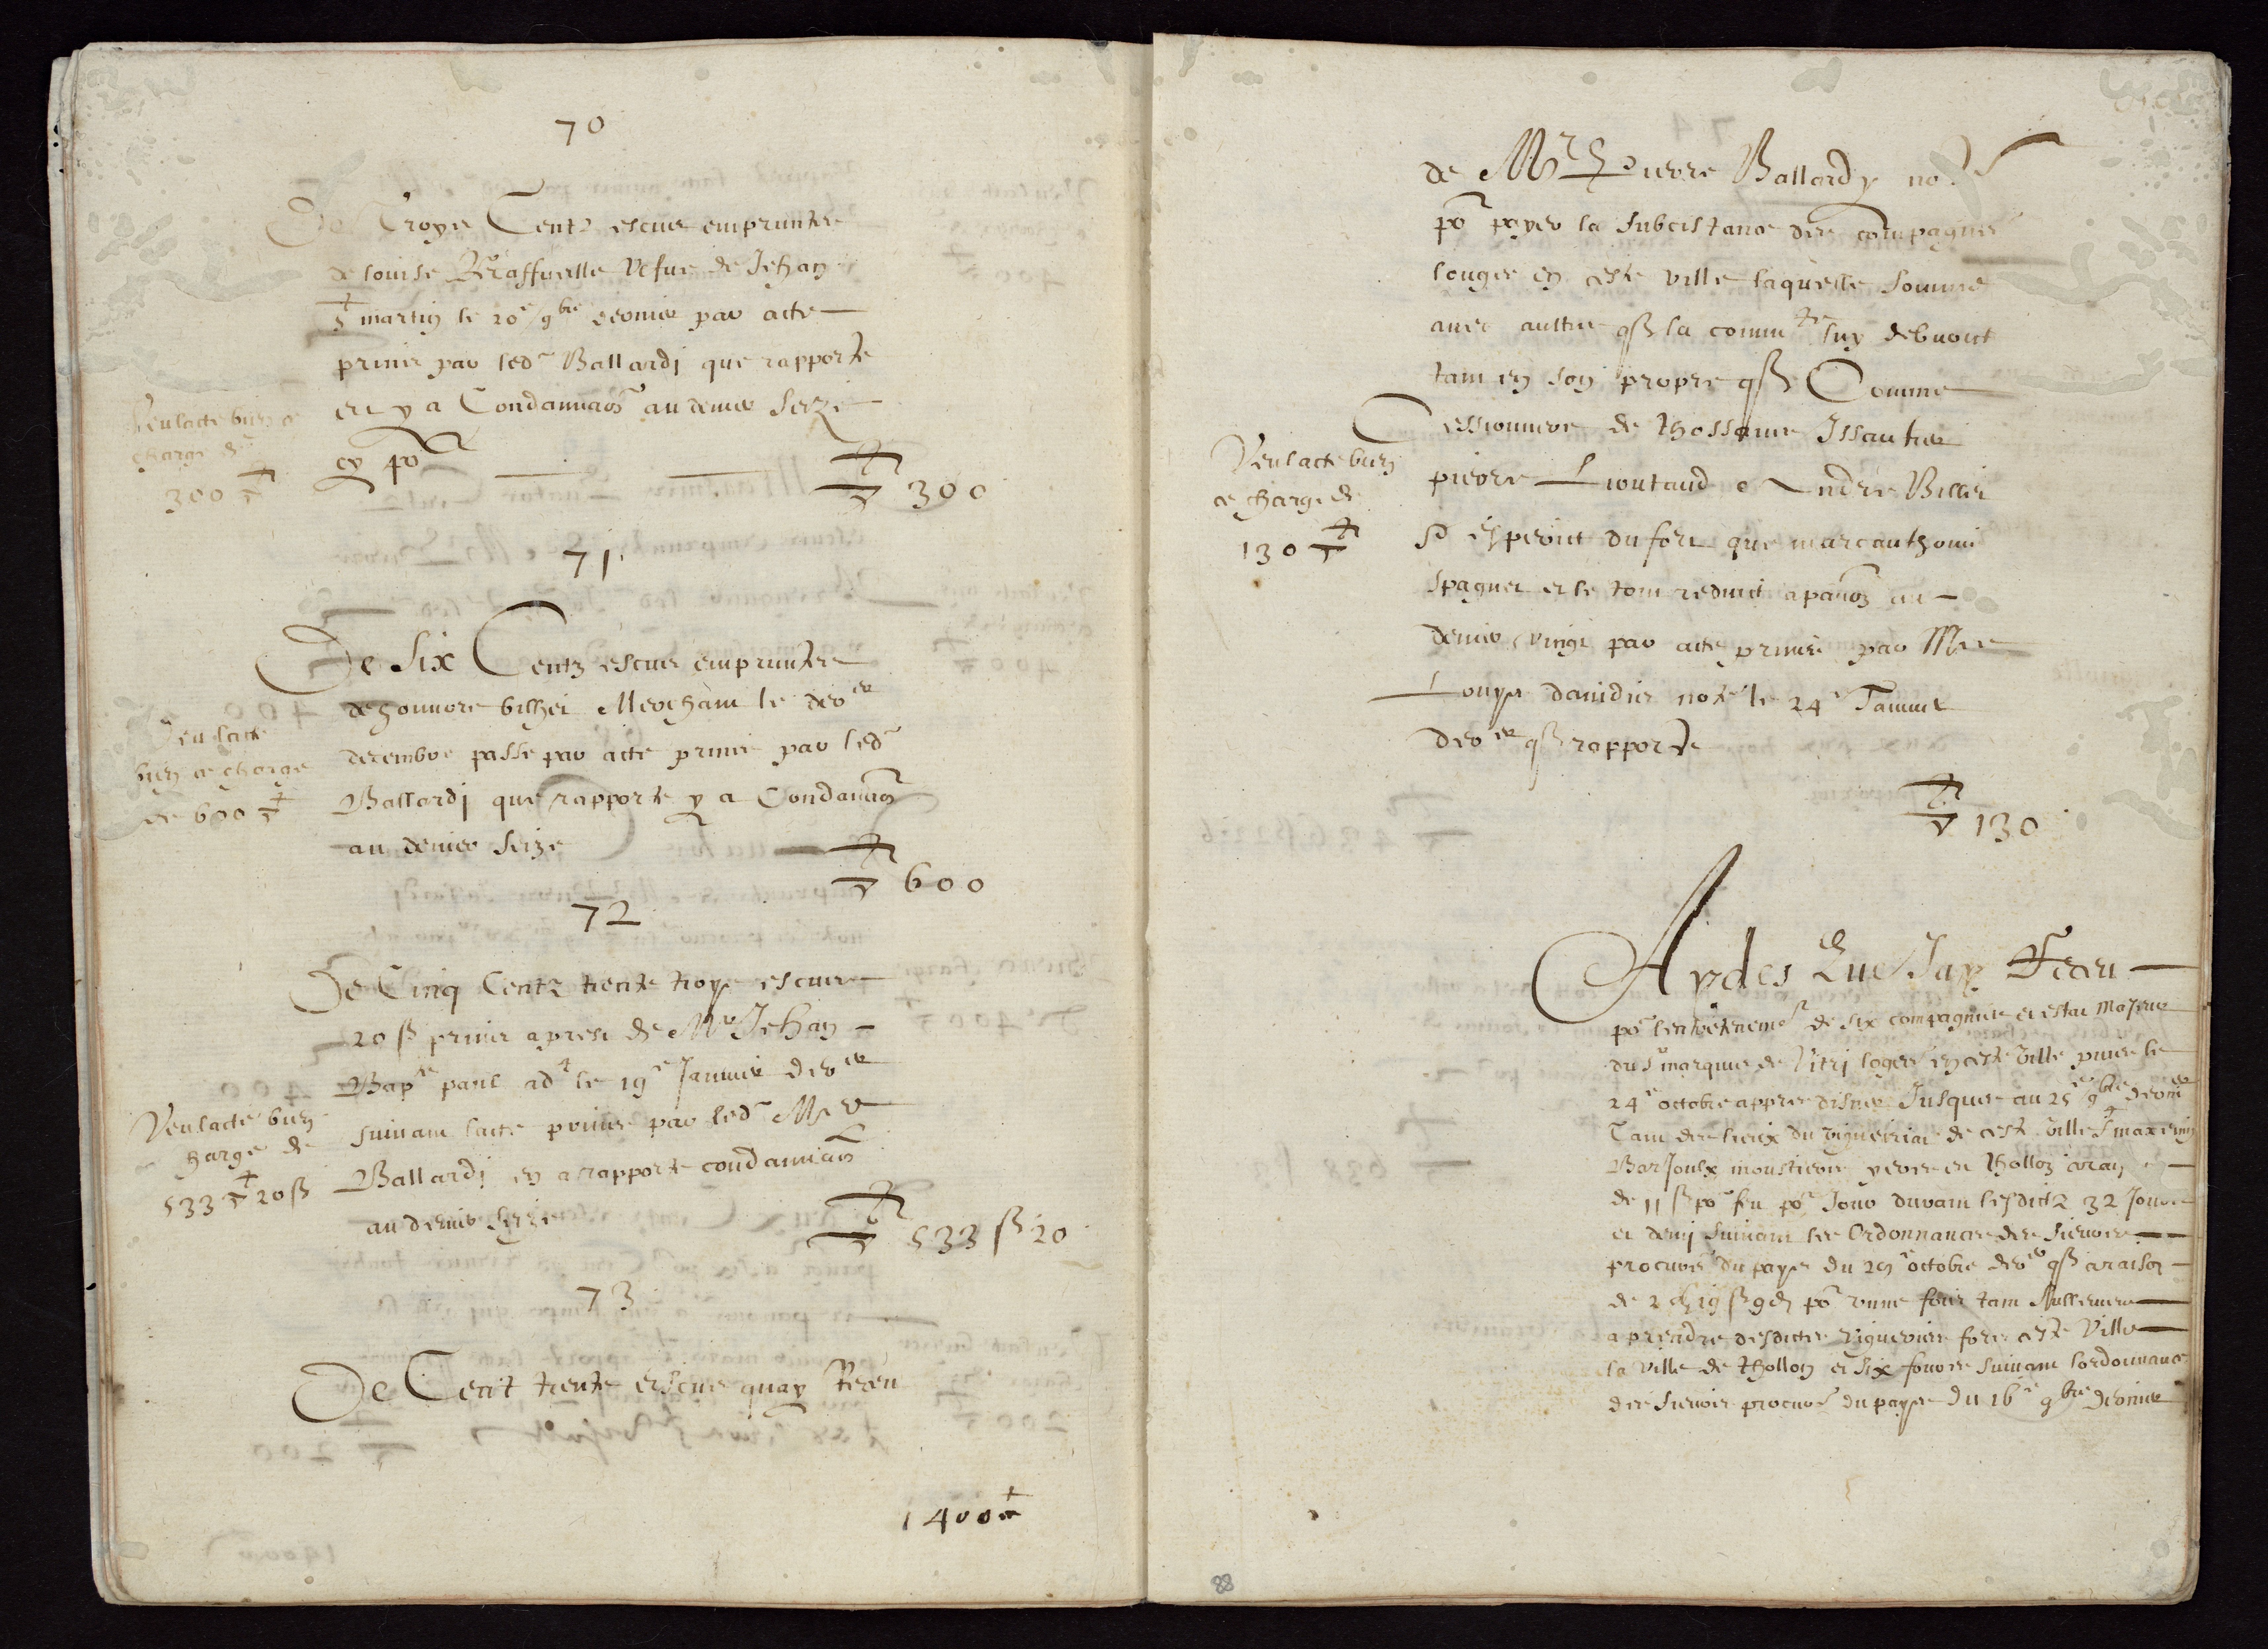 70
De Troys Centz escus empruntes
de louise Vefue de Jehan
martin le 20e 9bre dernier par acte
prins par led Ballardi que rapporte
et y a Condannaon au denier seize
cy po
▽ 300
Veu lacte bien
charge de
300 ▽
71
De Six Centz escus empruntes
de honnore bilhei Merchant le der er
decembre passe par acte prins par led
Ballardi que rapporte y a Condannaon
au denier seize
▽ 600
Veu lacte
bien ce charge
de 600 ▽
72
De Cinq Centz trente troys escus
20 ß prins apres de Mr Jehan
Bapte paul adt le 19e Januier der er
suiuant lacte prinse par led Me
Ballardi en a rapporte condannaon
au denier seize
▽ 533 ß 20
Veu lacte bien
charge de
533 ▽ 20 ß
73
De Cent trente escus quay Receu
1400 ▽
de Mre Pierre Ballardy no
po payer la subcistance des compagnies
louges en ceste ville laquelle somme
auec aultre qß la commte luy debuoit
tant en son propre qß Comme
Cessionnere de thossane Issautier
pierre Lioutaud Andre Billei
esperit du fort que marcanthoni
spagnet et le tout reduict a paon au
denier vingt par acte prinse par Me
Louys dauidis note le 24e Januie
der er qß rapporte
▽ 130
Veu lacte bien
ce charge de
130 ▽
Aydes Que Jay Receu
po lentretenemt de six compagnies et estat Majeur
du Sr marquis de Vitri loges en ceste ville puis le
24e octobre appres disner Jusques au 25e 9bre dernier
Tant des lieux du vigueirat de ceste ville St maxemin
Barjoulx moustiers yeres et thollon a raison
de 11 ß po feu po Jour durant lesdictz 32 Jours
et demj suiuant les Ordonnances des sieurs
procurs du pays du 29e octobre der er qß a raison
de 2 19 ß 9 d po vnne fois tant seullement
a prendre desdictes vigueries fors ceste ville
la ville de thollon et six suiuant lordonnance
des sieurs procurs du pays du 16e 9bre dernier
88